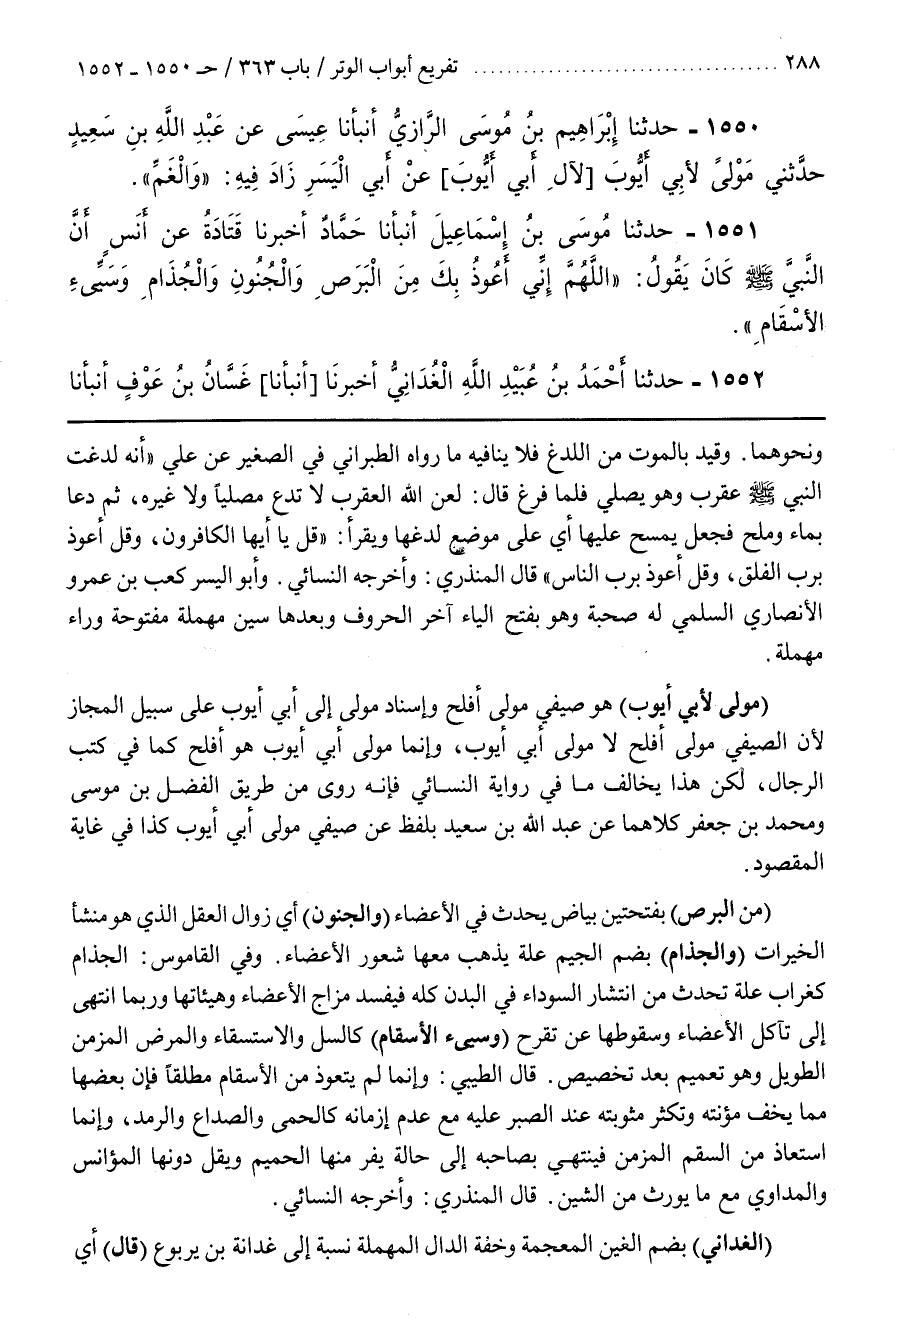 ٢٨٨ .................................. تفريع أبواب الوتر / باب ٣٦٣ / حـ ١٥٥٠ ـ ١٥٥٢
١٥٥٠ ـ حدثنا إِبْرَاهِيم بنُ مُوسَى الرَّازِيُّ أنبأنا عِيسَى عن عَبْدِ اللَّهِ بنِ سَعِيدٍ
حدَّثني مَوْلىً لأبِي أَيُّوبَ [لآل أَبي أَيُّوبَ] عنْ أبي الْيَسَرِ زَادَ فِيهِ: «وَالْغَمِّ».
١٥٥١ ـ حدثنا مُوسَى بنُ إِسْمَاعِيلَ أنبأنا حَمَّادٌ أخبرنا قَتَادَةُ عن أَنَسٍ أَنَّ
النَّبيَّ ﷺ كَانَ يَقُولُ: «اللَّهُمَّ إِنِّي أَعُوذُ بِكَ مِنَ الْبَرَصِ وَالْجُنُونِ وَالْجُذَامِ وَسَيِّىءِ
الأسْقَامِ».
١٥٥٢ ـ حدثنا أَحْمَدُ بنُ عُبَيْدِ اللَّهِ الْغُدَانِيُّ أخبرنَا [أنبأنا] غَسَّانُ بنُ عَوْفٍ أنبأنا
ونحوهما. وقيد بالموت من اللدغ فلا ينافيه ما رواه الطبراني في الصغير عن علي «أنه لدغت
النبي ﷺ عقرب وهو يصلي فلما فرغ قال: لعن الله العقرب لا تدع مصلياً ولا غيره، ثم دعا
بماء وملح فجعل يمسح عليها أي على موضع لدغها ويقرأ: «قل يا أيها الكافرون، وقل أعوذ
برب الفلق، وقل أعوذ برب الناس» قال المنذري: وأخرجه النسائي. وأبو اليسر كعب بن عمرو
الأنصاري السلمي له صحبة وهو بفتح الياء آخر الحروف وبعدها سين مهملة مفتوحة وراء
مهملة.
(مولى لأبي أيوب) هو صيفي مولى أفلح وإسناد مولى إلى أبي أيوب على سبيل المجاز
لأن الصيفي مولى أفلح لا مولى أبي أيوب، وإنما مولى أبي أيوب هو أفلح كما في كتب
الرجال، لكن هذا يخالف ما في رواية النسائي فإنه روى من طريق الفضل بن موسى
ومحمد بن جعفر كلاهما عن عبد الله بن سعيد بلفظ عن صيفي مولى أبي أيوب كذا في غاية
المقصود.
(من البرص) بفتحتين بياض يحدث في الأعضاء (والجنون) أي زوال العقل الذي هو منشأ
الخيرات (والجذام) بضم الجيم علة يذهب معها شعور الأعضاء. وفي القاموس: الجذام
كغراب علة تحدث من انتشار السوداء في البدن كله فيفسد مزاج الأعضاء وهيئاتها وربما انتهى
إلى تآكل الأعضاء وسقوطها عن تقرح (وسيىء الأسقام) كالسل والاستسقاء والمرض المزمن
الطويل وهو تعميم بعد تخصيص. قال الطيبي: وإنما لم يتعوذ من الأسقام مطلقاً فإن بعضها
مما يخف مؤنته وتكثر مثوبته عند الصبر عليه مع عدم إزمانه كالحمى والصداع والرمد، وإنما
استعاذ من السقم المزمن فينتهي بصاحبه إلى حالة يفر منها الحميم ويقل دونها المؤانس
والمداوي مع ما يورث من الشين. قال المنذري: وأخرجه النسائي.
(الغداني) بضم الغين المعجمة وخفة الدال المهملة نسبة إلى غدانة بن يربوع (قال) أي